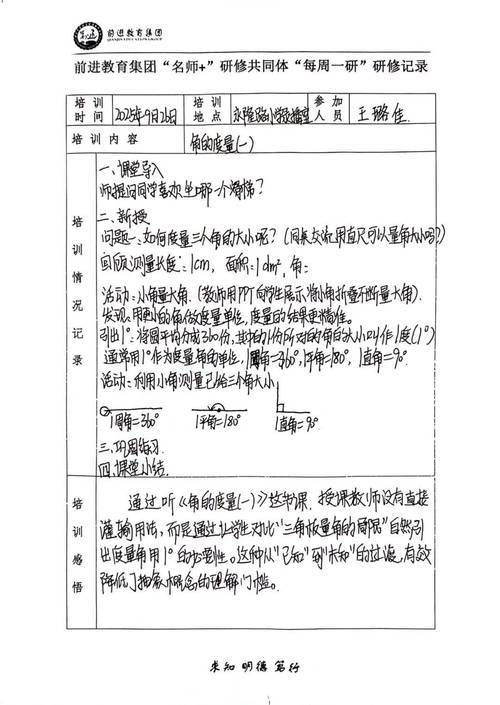 前进教育集团
前进教育集团“名师+”研修共同体“每周一研”研修记录
培训时间 2025年9月26日 培训地点 永隆路小学录播室 参加人员 王璐佳
培训内容 角的度量(一)
培训情况记录
一、课堂导入
师提问同学喜欢坐哪一个滑梯?
二、新授
问题一:如何度量三个角的大小呢?(同桌交流用直尺可以量角大小吗?)
回顾测量长度:1cm,面积:1dm²,角:
活动:小角量大角.(教师用PPT向学生展示将小角折叠不断量大角).
发现:用更小的角做度量单位,度量的结果更精准。
引出1°:将圆平均分成360份,其中的1份所对的角的大小叫作1度(1°)
通常用1°作为度量角的单位,1周角=360°,1平角=180°,1直角=90°.
活动:利用小角测量已给三个角大小
1周角=360° 1平角=180° 1直角=90°
三、巩固练习.
四、课堂小结.
培训感悟
通过听《角的度量(一)》这节课.授课教师没有直接
灌输用法,而是通过让学生对比“三角板量角的局限”自然引
出度量角用1°的必要性。这种从“已知”到“未知”的过渡,有效
降低了抽象概念的理解门槛。
求知 明德 笃行